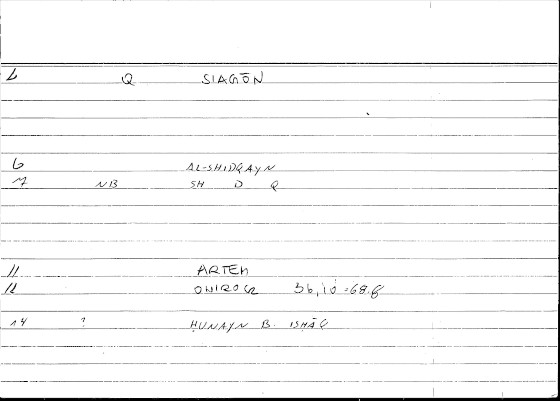 6 Q SIAGŌN
6 AL-SHIDQAYN
7 NB SH D Q
11 ARTEM
12 ONIROCR 36,10 = 68.8
14 ? ḤUNAYN B. ISḤĀQ